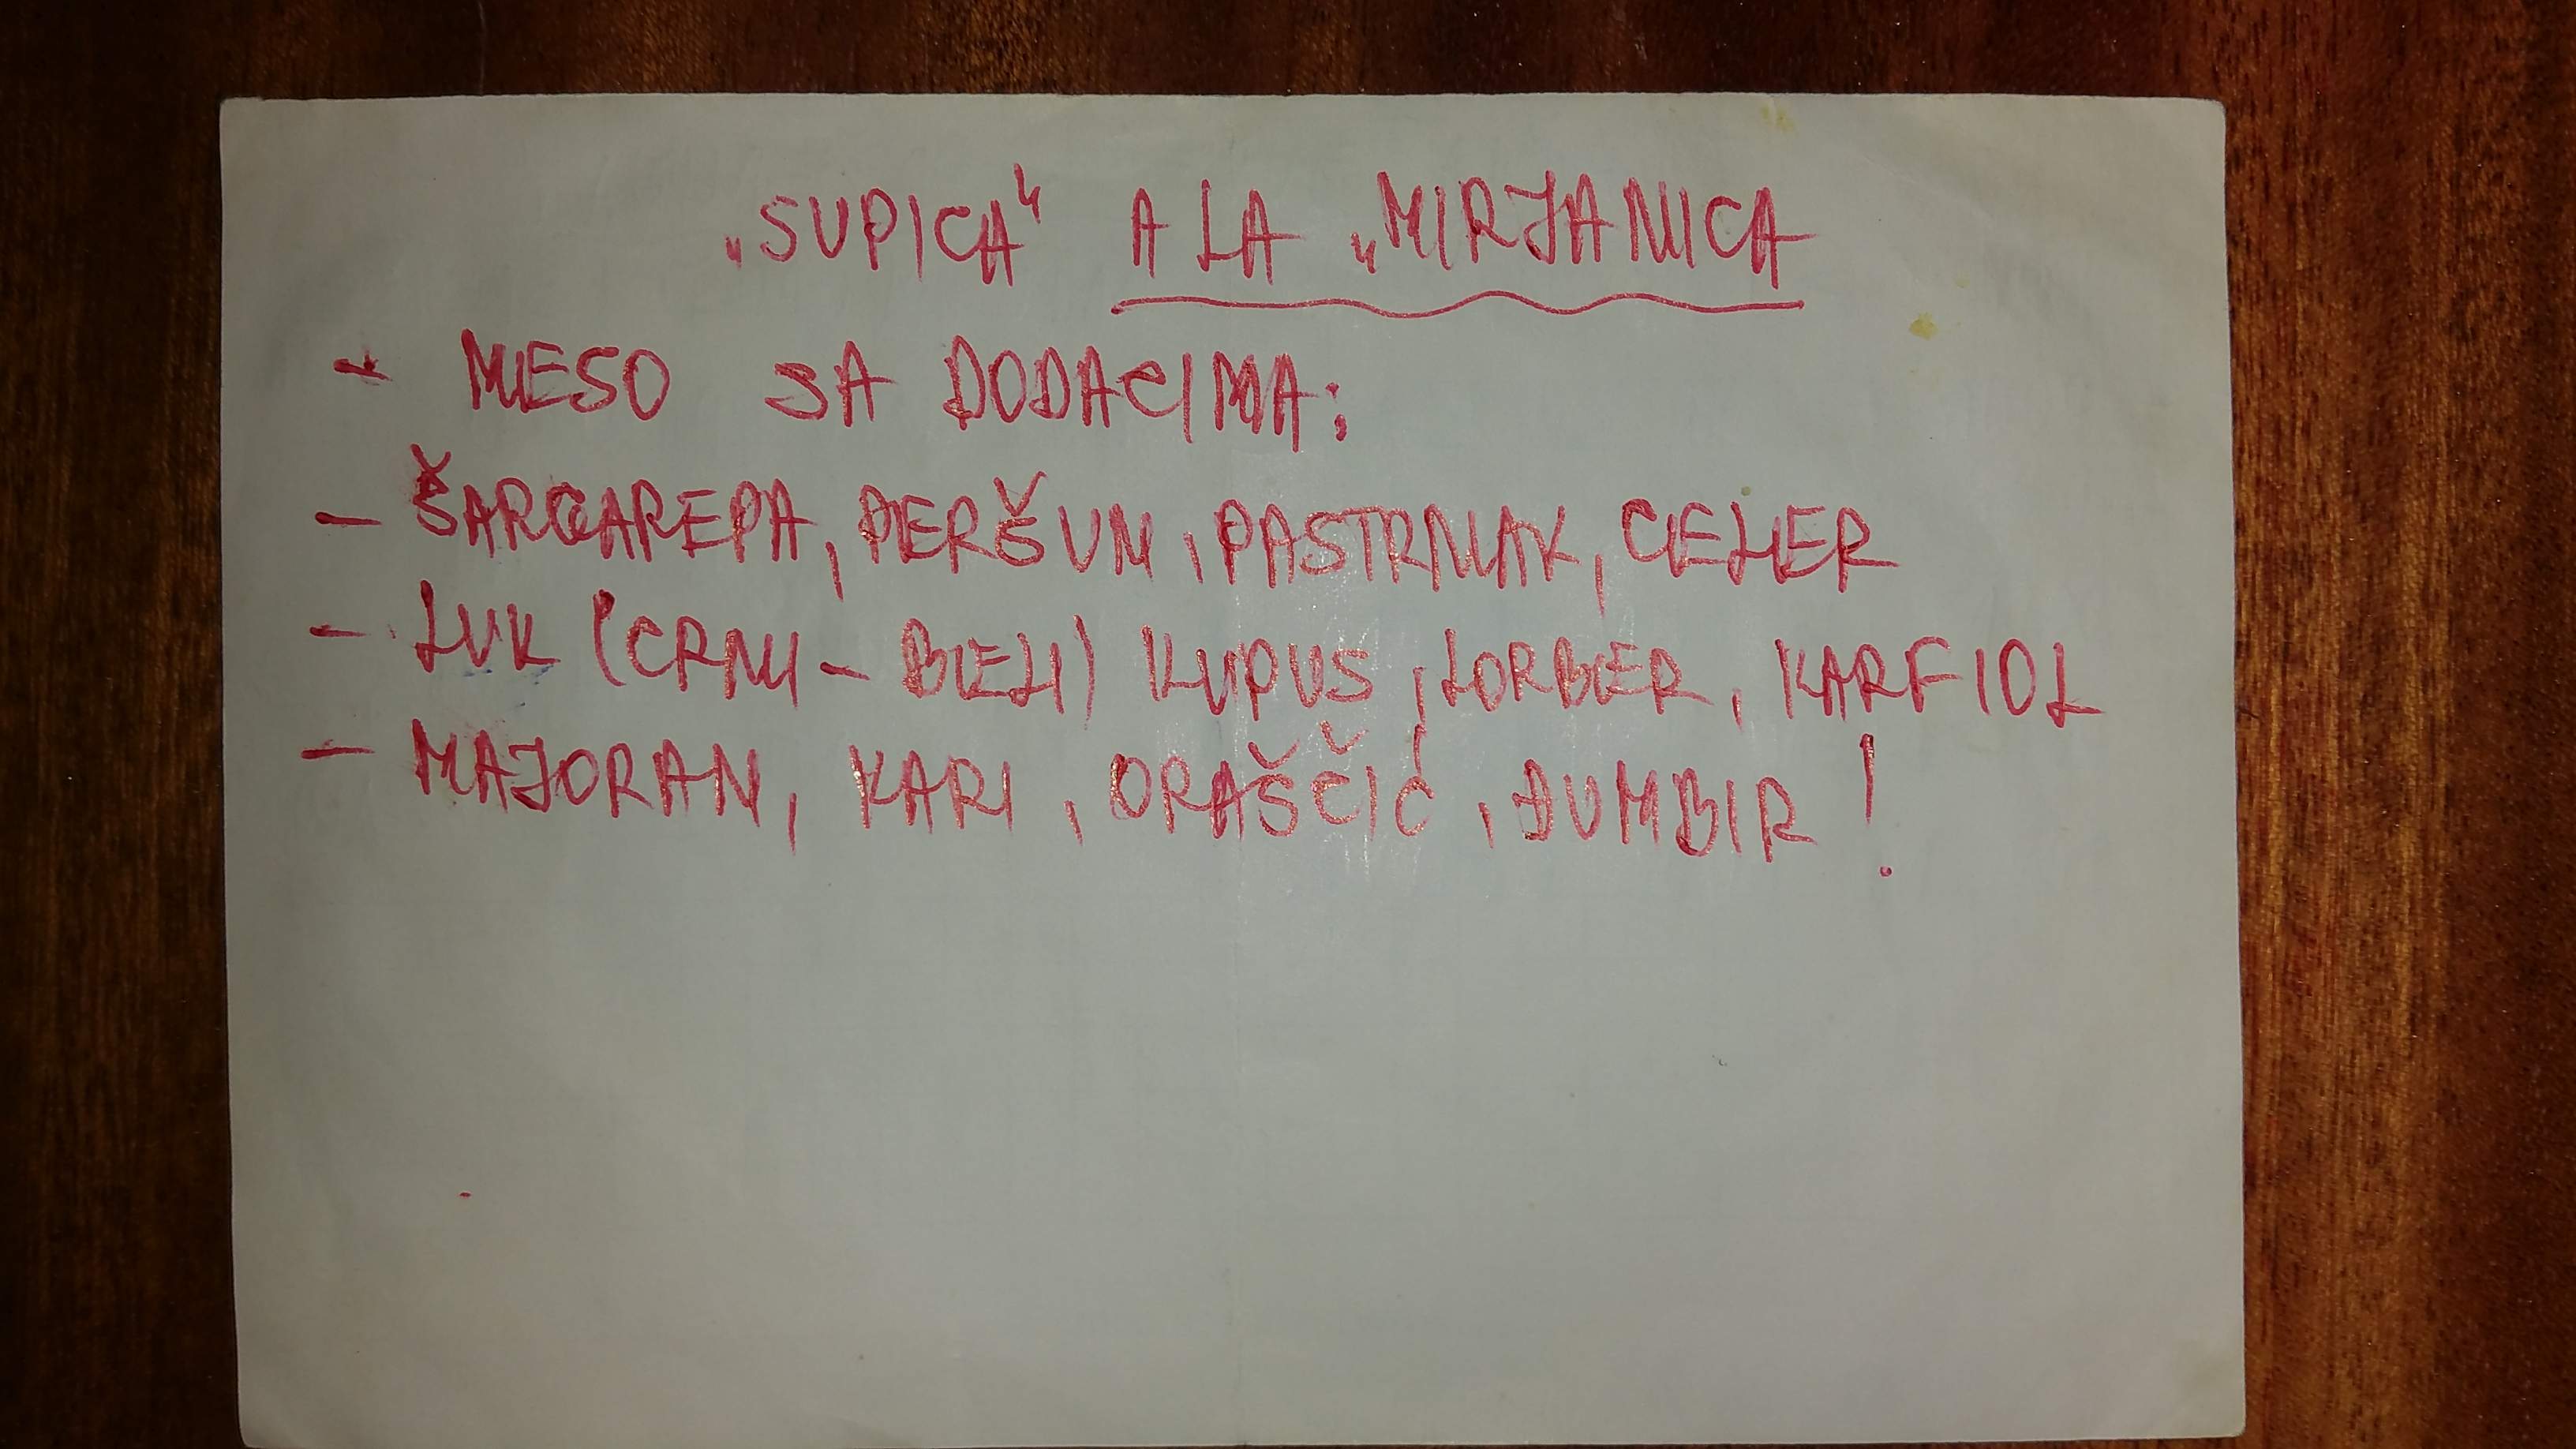 „SUPICA“ A LA „MIRJANICA
- MESO SA DODACIMA:
- ŠARGAREPA, PERŠUN, PASTRNAK, CELER
- LUK (CRNI - BELI) KUPUS, LORBER, KARFIOL
- MAJORAN, KARI, ORAŠČIĆ, ĐUMBIR!